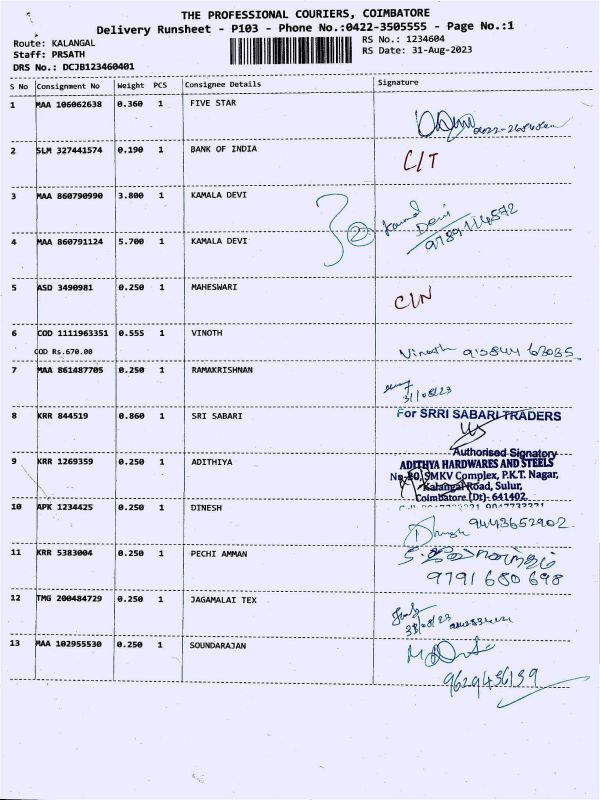 THE PROFESSIONAL COURIERS, COIMBATORE
Delivery Runsheet - P103 - Phone No.:0422-3505555 - Page No.:1
Route: KALANGAL
RS No.: 1234604
Staff: PRSATH
RS Date: 31-Aug-2023
DRS No.: DCJB123460401
S No Consignment No Weight PCS Consignee Details Signature
1 MAA 106062638 0.360 1 FIVE STAR
2 SLM 327441574 0.190 1 BANK OF INDIA C/T
3 MAA 860790990 3.800 1 KAMALA DEVI
2 Kamal Devi
4 MAA 860791124 5.700 1 KAMALA DEVI
5 ASD 3490981 0.250 1 MAHESWARI C/N
6 COD 1111963351 0.555 1 VINOTH
COD Rs.670.00 Vinoth
7 MAA 861487705 0.250 1 RAMAKRISHNAN
31/08/23
8 KRR 844519 0.860 1 SRI SABARI For SRRI SABARI TRADERS
Authorised Signatory
9 KRR 1269359 0.250 1 ADITHIYA ADITHYA HARDWARES AND STEELS
SMKV Complex, P.K.T. Nagar,
Kalangal Road, Sulur,
Coimbatore (Dt)- 641402.
10 APK 1234425 0.250 1 DINESH
9443652902
11 KRR 5383004 0.250 1 PECHI AMMAN
9791 680 698
12 TMG 200484729 0.250 1 JAGAMALAI TEX
13 MAA 102955530 0.250 1 SOUNDARAJAN
9629456159